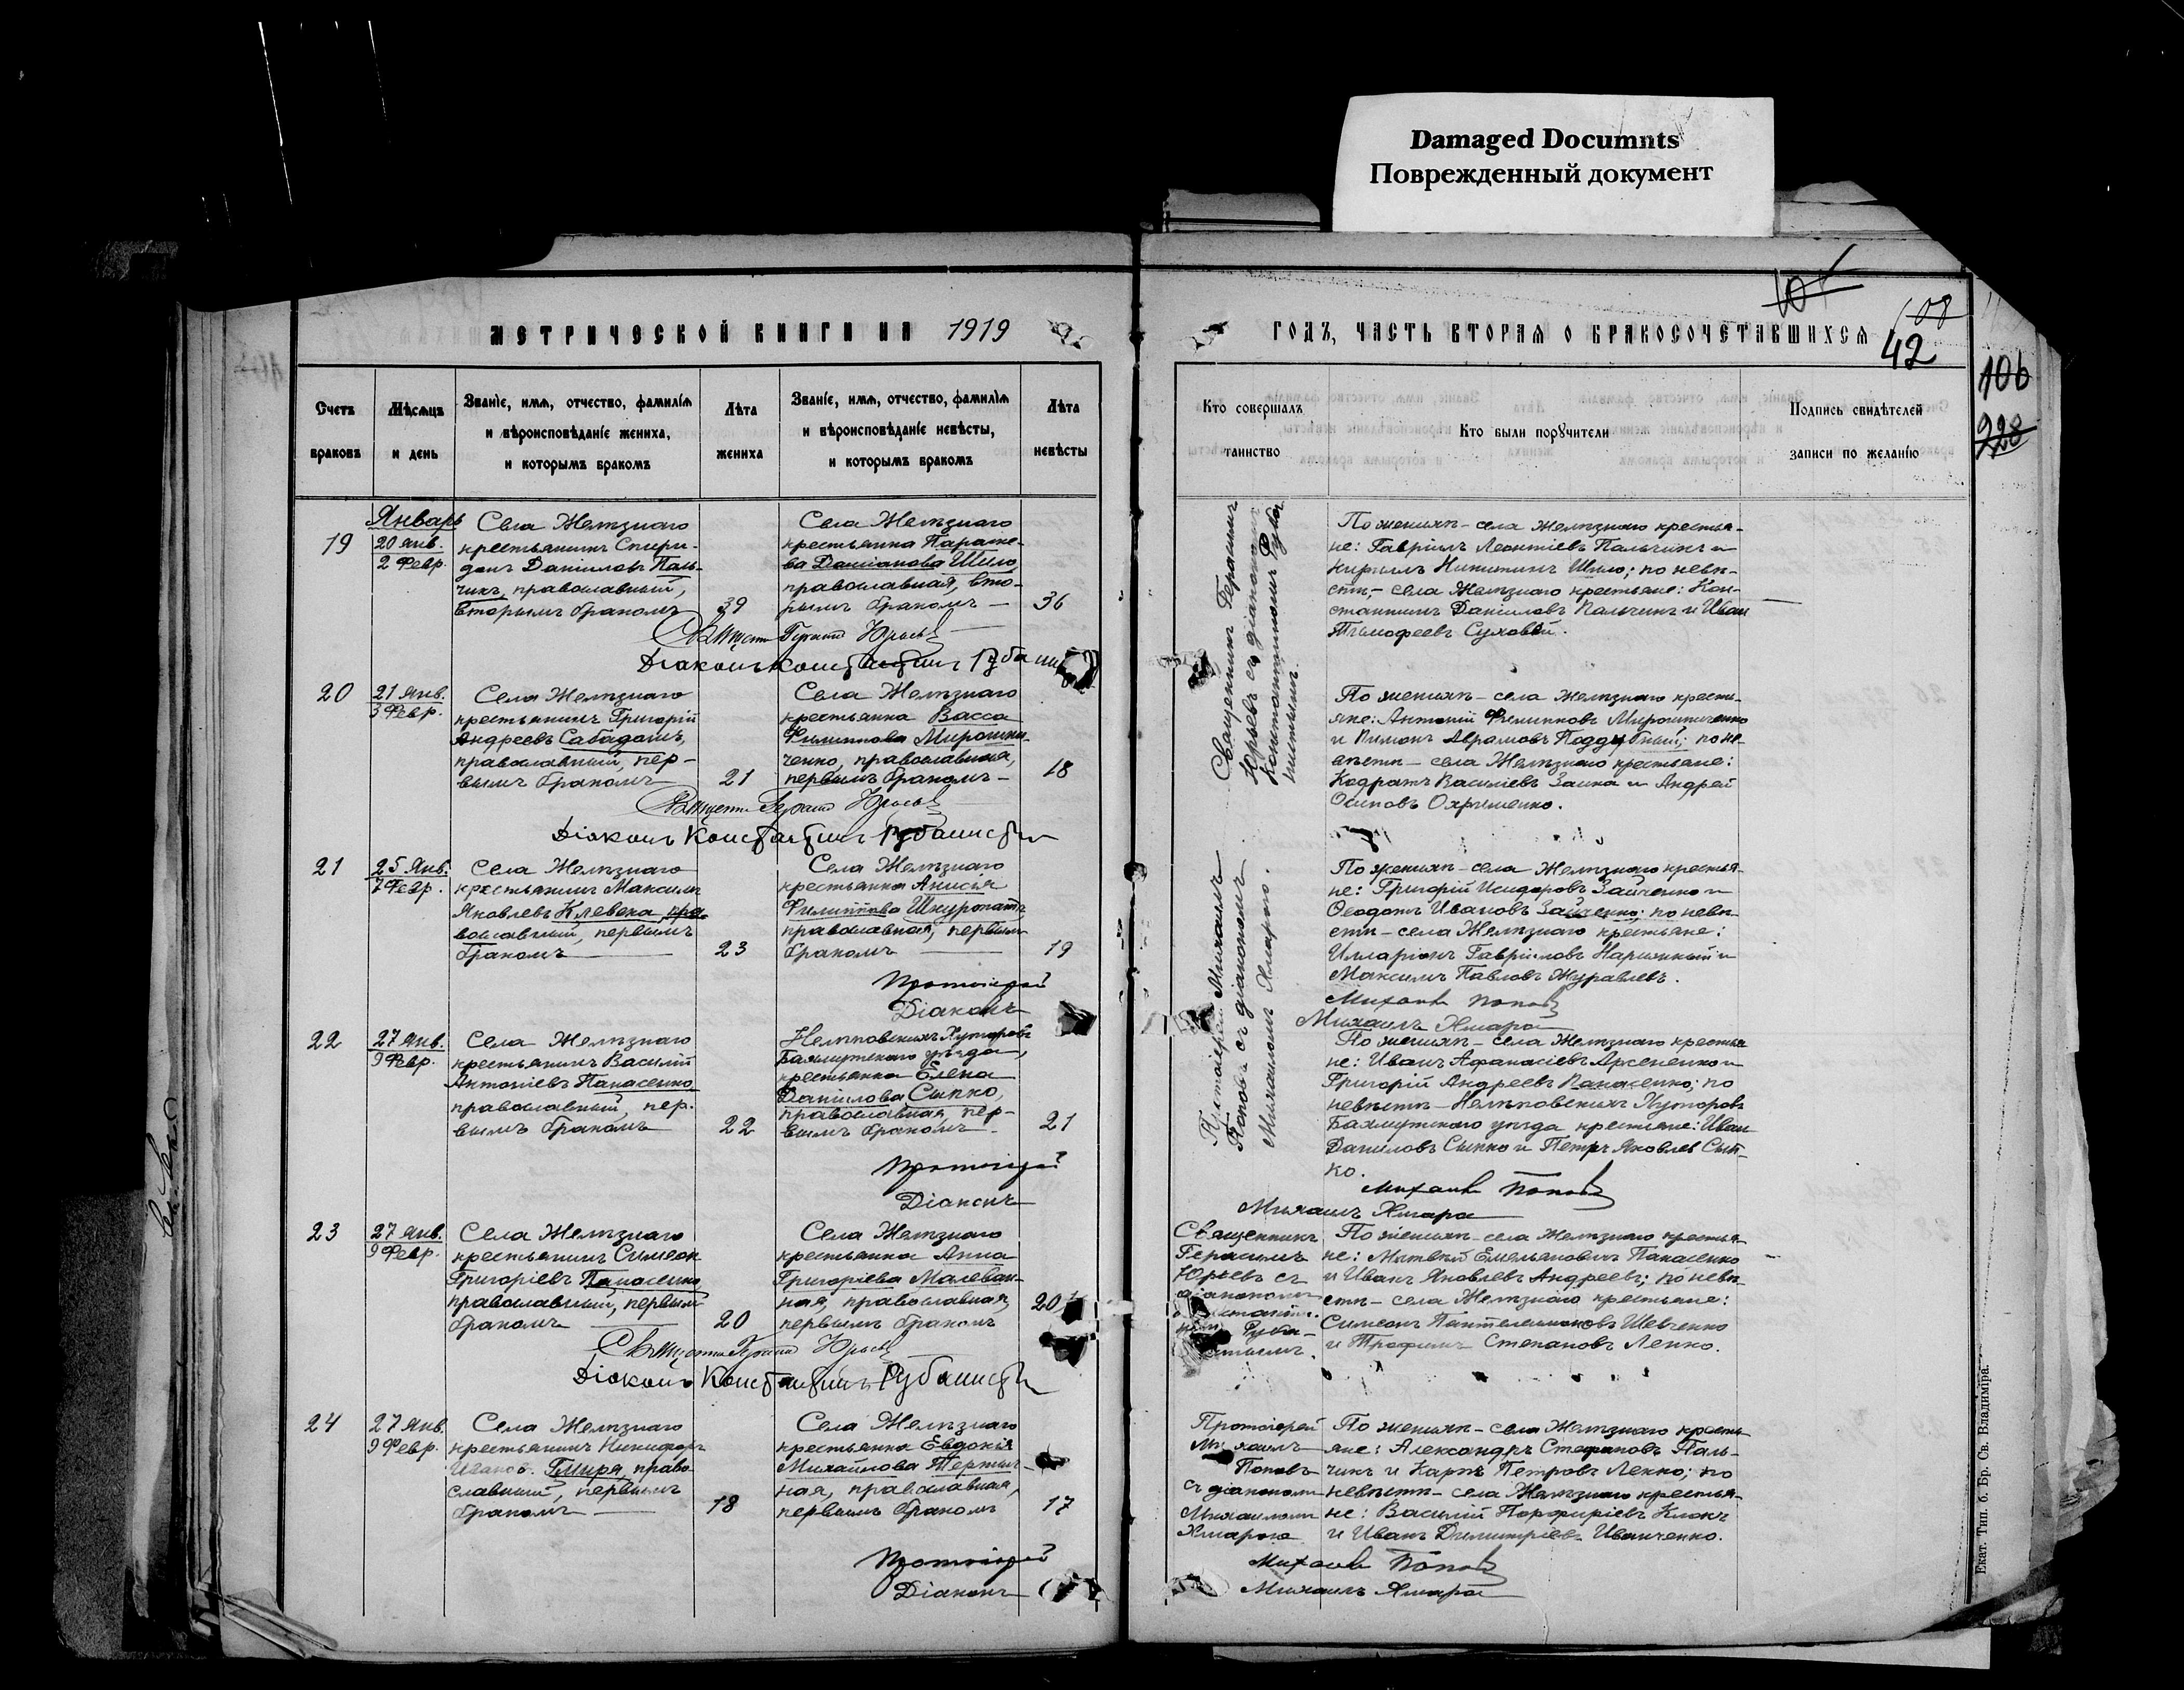 Damaged Documnts
Поврежденный документ
108
42
106
228
МЕТРИЧЕСКОЙ КНИГИ НА 1919
ГОДЪ, ЧАСТЬ ВТОРАЯ О БРАКОСОЧЕТАВШИХСЯ
Счетъ браковъ
Мѣсяцъ и день
Званіе, имя, отчество, фамилія
и вѣроисповѣданіе жениха,
и которымъ бракомъ
Лѣта жениха
Званіе, имя, отчество, фамилія
и вѣроисповѣданіе невѣсты,
и которымъ бракомъ
Лѣта невѣсты
Кто совершалъ таинство
Кто были поручители
Подпись свидѣтелей
записи по желанію
Январь
19
20 янв.
2 Февр.
Села Желѣзнаго
крестьянинъ Спири-
донъ Даниловъ Паль-
чикъ, православный,
вторымъ бракомъ
39
Села Желѣзнаго
крестьянка Параске-
ва Даміанова Шило,
православная, вто-
рымъ бракомъ
36
Священникъ Герасимъ
Юрьевъ съ діакономъ
Константиномъ
По женихѣ – села Желѣзнаго крестья-
не: Гавріилъ Леонтіевъ Пальчикъ и
Кириллъ Никитинъ Шило; по невѣ-
стѣ – села Желѣзнаго крестьяне: Кон-
стантинъ Даніиловъ Пальчикъ и Иван
Тимофеевъ Суховѣй.
Священ Герасим Юрьевъ
Діаконъ Константинъ
20
21 янв.
3 Февр.
Села Желѣзнаго
крестьянинъ Григорій
Андреевъ Сабадашъ,
православный, пер-
вымъ бракомъ
21
Села Желѣзнаго
крестьянка Васса
Филиппова Мирошни-
ченко, православная,
первымъ бракомъ
18
По женихѣ – села Желѣзнаго кресть-
яне: Антоній Филипповъ Мирошниченко
и Пименъ Аврамовъ Поддубный; по не-
вѣстѣ – села Желѣзнаго крестьяне:
Кодратъ Василіевъ Заика и Андрей
Осиповъ Охрименко.
Священ Герасим Юрьевъ
Діаконъ Константинъ
21
25 Янв.
7 Февр.
Села Желѣзнаго
крестьянинъ Максимъ
Яковлевъ Клевека, пра-
вославный, первымъ
бракомъ
23
Села Желѣзнаго
крестьянка Анисія
Филиппова Шкуропатъ,
православная, первым
бракомъ
19
Протоіерей Михаилъ
Поповъ съ діакономъ
Михаиломъ Хмарою.
По женихѣ – села Желѣзнаго крестья-
не: Григорій Исидоровъ Зайченко и
Ѳеодотъ Ивановъ Зайченко; по невѣ-
стѣ – села Желѣзнаго крестьяне:
Илларіонъ Гавріиловъ Нарижный и
Максимъ Павловъ Журавлевъ.
Протоіерей Михаилъ Поповъ
Діаконъ Михаилъ Хмара
22
27 Янв.
9 Февр.
Села Желѣзнаго
крестьянинъ Василій
Антоніевъ Панасенко,
православный, пер-
вымъ бракомъ
22
Нелѣповскихъ Хуторовъ
Бахмутскаго уѣзда,
крестьянка Елена
Данилова Сыпко,
православная, пер-
вымъ бракомъ
21
По женихѣ – села Желѣзнаго крестья
не: Иванъ Афанасіевъ Арсененко и
Григорій Андреевъ Панасенко; по
невѣстѣ – Нелѣповскихъ Хуторовъ
Бахмутскаго уѣзда крестьяне: Иван
Даниловъ Сыпко и Петръ Яковлев Сып-
ко.
Протоіерей Михаилъ Поповъ
Діаконъ Михаилъ Хмара
23
27 янв.
9 Февр.
Села Желѣзнаго
крестьянинъ Симеон
Григоріевъ Панасенко
православный, первым
бракомъ
20
Села Желѣзнаго
крестьянка Анна
Григоріева Малеван-
ная, православная,
первымъ бракомъ
20
Священникъ
Герасимъ
Юрьевъ съ
діакономъ
По женихѣ – села Желѣзнаго крестья-
не: Матвѣй Емельяновичъ Панасенко
и Иванъ Яковлевъ Андреевъ; по невѣ-
стѣ – села Желѣзнаго крестьяне:
Симеонъ Пантелеимоновъ Шевченко
и Трофимъ Степановъ Лепко.
Священ Герасим Юрьевъ
Діаконъ Константинъ
24
27 Янв.
9 Февр.
Села Желѣзнаго
крестьянинъ Никифоръ
Иванов. Гмиря, право
славный, первымъ
бракомъ
18
Села Желѣзнаго
крестьянка Евдокія
Михайлова
ная, православная,
первымъ бракомъ
17
Протоіерей
Михаилъ
Поповъ
съ діакономъ
Михаиломъ
Хмарою
По женихѣ – села Желѣзнаго кресть-
яне: Александръ Стефановъ Паль-
чикъ и Карпъ Петровъ Лепко; по
невѣстѣ – села Желѣзнаго крестья-
не: Василій Порфиріевъ Клокъ
и Иванъ Димитріевъ Иванченко.
Протоіерей Михаилъ Поповъ
Діаконъ Михаилъ Хмара
Екат. Тип. б. Бр. Св. Владиміра.